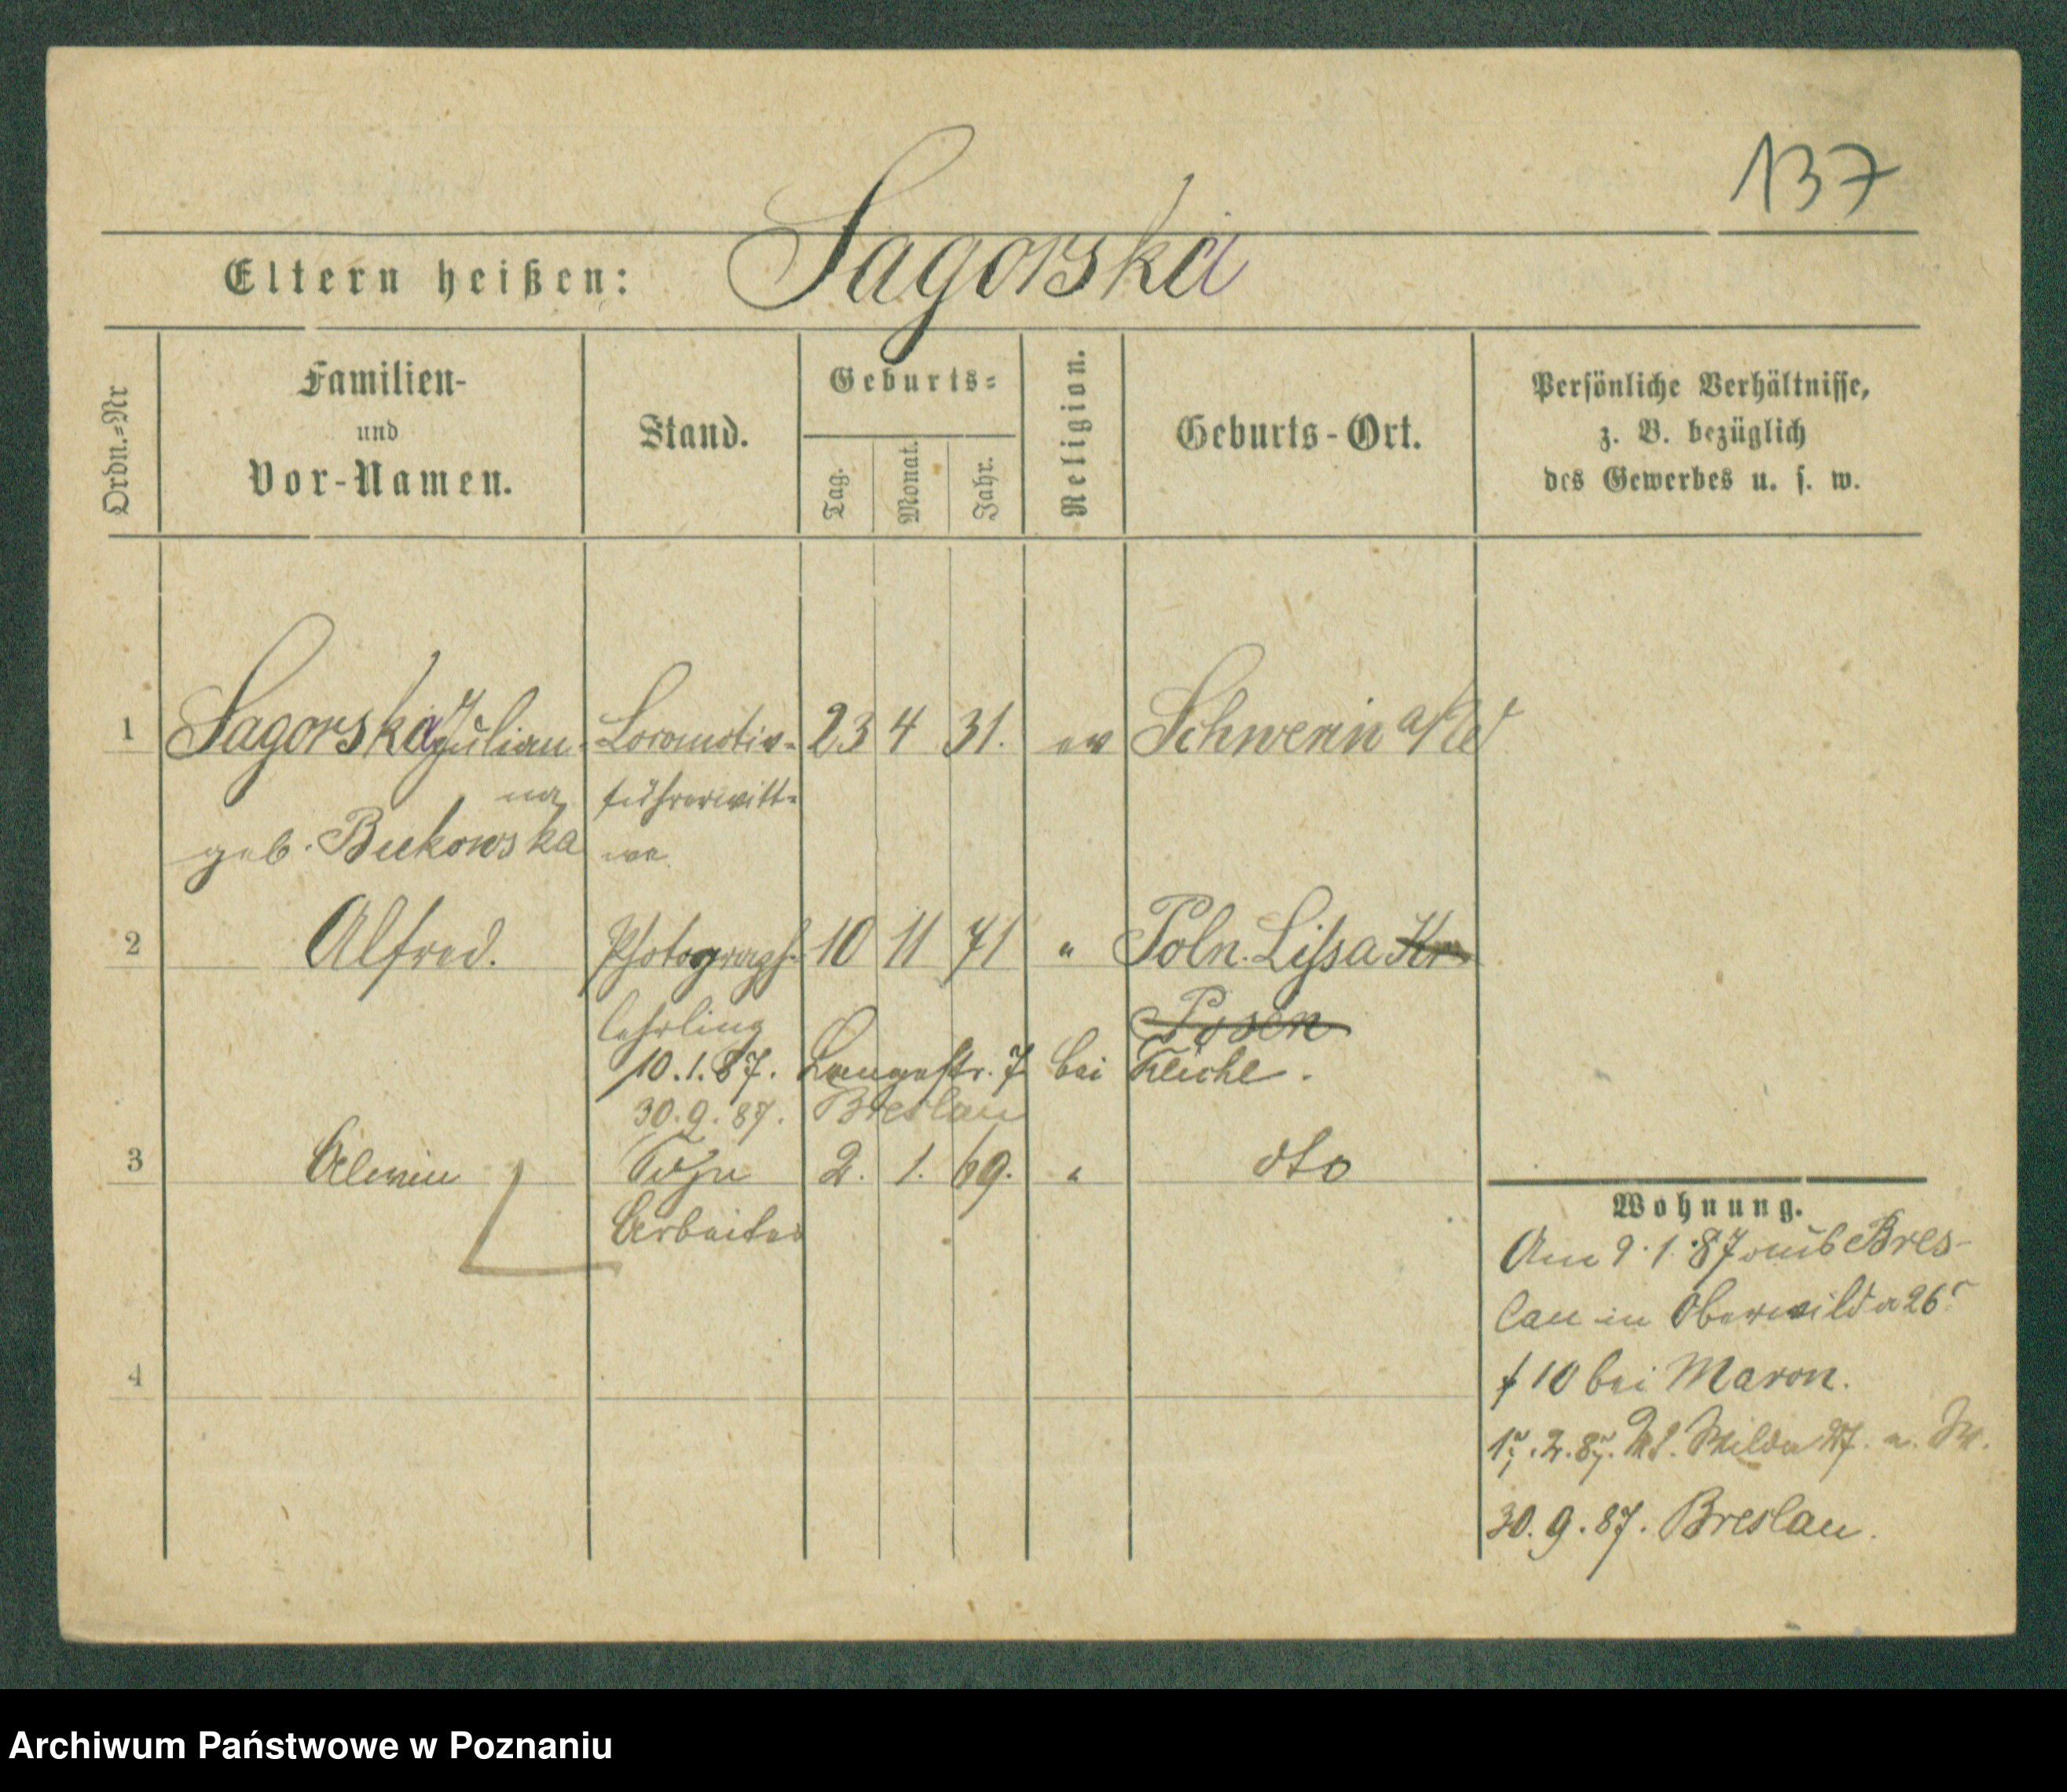 137
Eltern heißen: Sagorska
Ordn.=Nr
Familien-
und
Vor-Namen.
Stand.
Geburts=
Tag.
Monat.
Jahr.
Religion.
Geburts-Ort.
Persönliche Verhältnisse,
z. B. bezüglich
des Gewerbes u. s. w.
1 Sagorska Julian= Locomotiv= 23 4 31. ev Schwerin a/W
na führerwitt=
geb. Bukowska we.
2 Alfred. Photograph= 10 11 71 " Poln. Lissa Kr
lehrling Posen
10.1.87. Langestr. 7 bei
30.9.87. Breslau
3 Alwin Sohn 2. 1. 69. " dto
Arbeiter
4
Wohnung.
Am 9.1.87 aus Bres-
lau in Oberwilda 26
10 bei Maron.
2. 87. Wilda
30.9.87. Breslau.
Archiwum Państwowe w Poznaniu